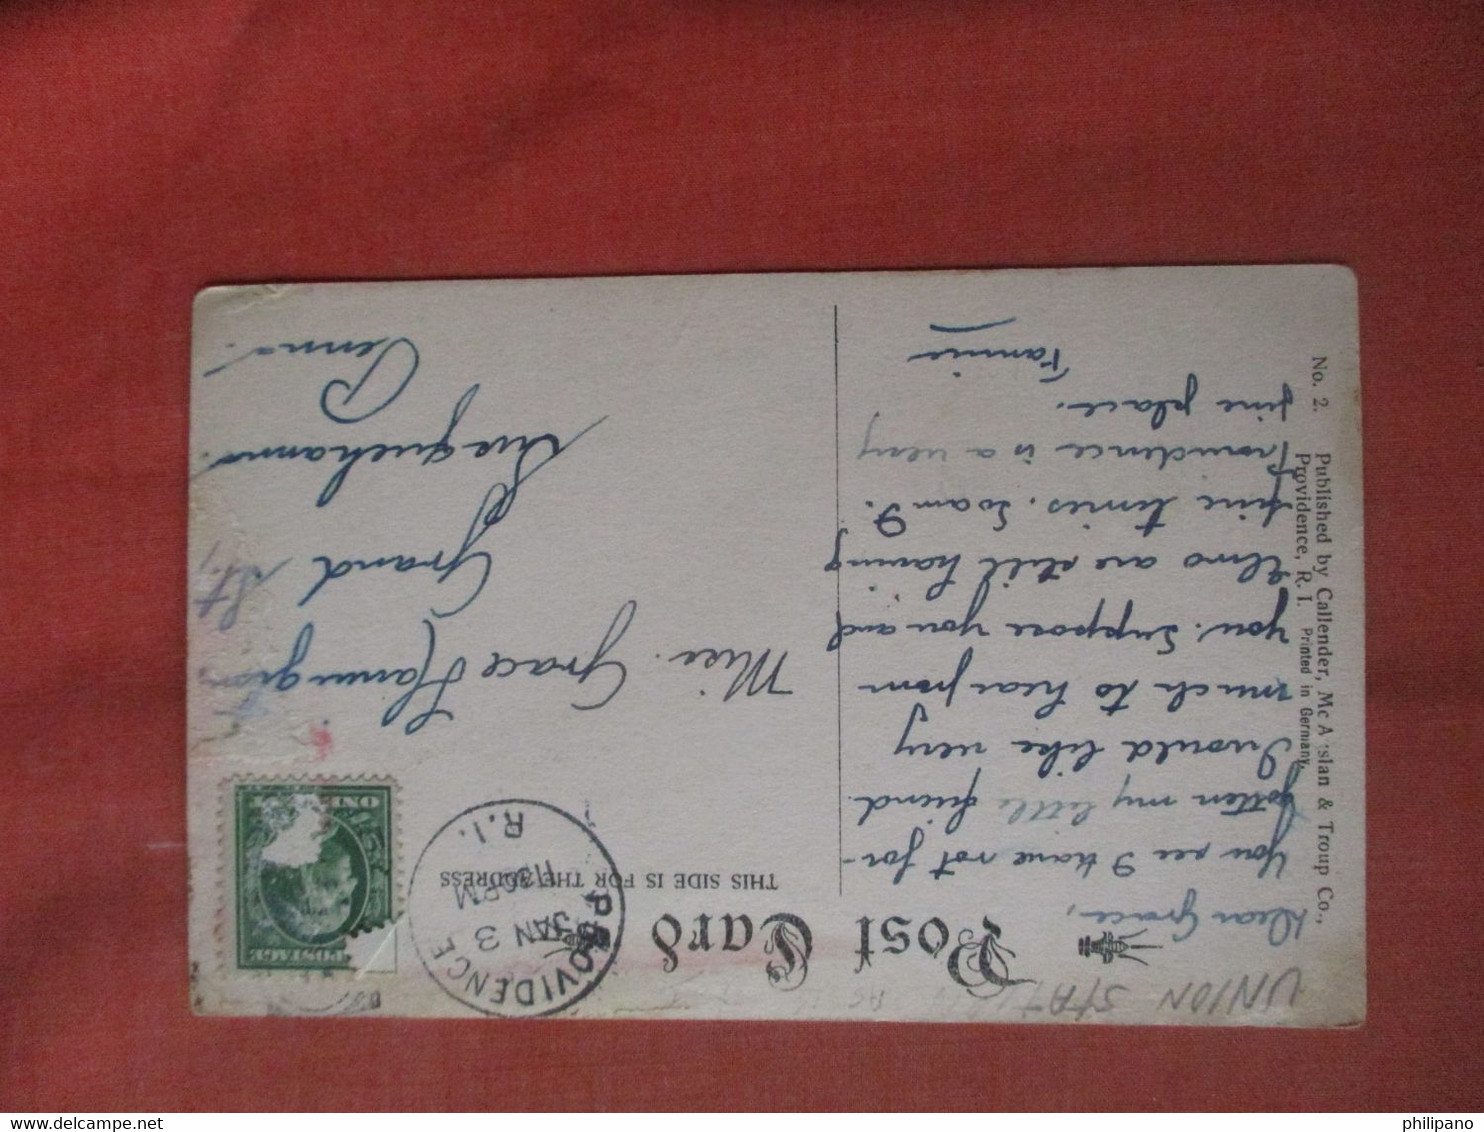 UNION STATION
Post Card
THIS SIDE IS FOR THE ADDRESS
Dear Grace,
You see I have not for-
gotten my little friend.
I would like very
much to hear from
you. Suppose you and
are still having
fine times. So am I.
Providence is a very
fine place.
Fannie
No. 2. Published by Callender, McA slan & Troup Co.,
Providence, R. I. Printed in Germany.
PROVIDENCE
JAN 3
11 30 PM
R.I.
POSTAGE
ONE
Miss. Grace
Grand St,
Susquehanna.
Penna.
philipano
delcampe.net